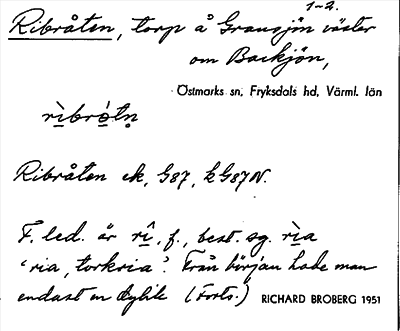 1-2.
Ribråten, torp å Gransjön väster
om Backjön,
Östmarks sn, Fryksdals hd, Värml. län
rìbrǫ̀tn̥
Ribråten ek, G87, k G87N.
F. led. är rî, f., best. sg. rìa
'ria, torkria'. Från början hade man
endast en dylik (Forts.) RICHARD BROBERG 1951